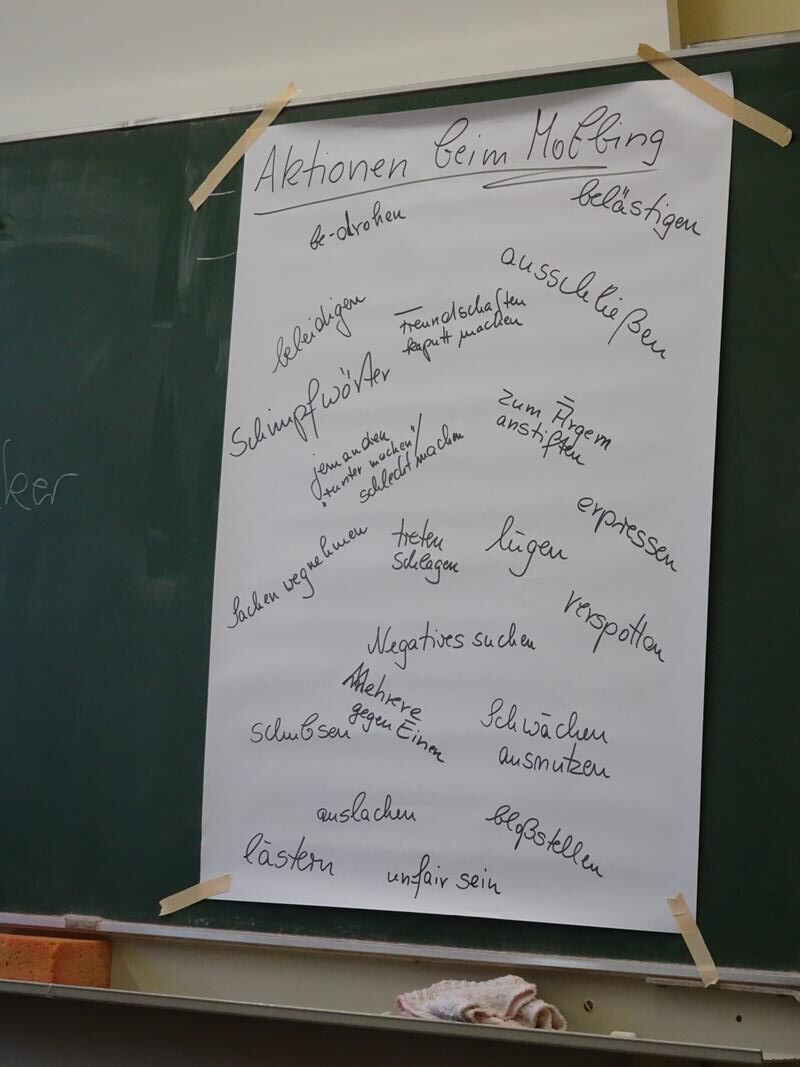 Aktionen beim Mobbing
be-drohen
belästigen
ausschließen
beleidigen
Freundschaften
kaputt machen
Schimpfwörter
zum Ärgern
anstiften
jemanden
"runter machen"/
schlecht machen
erpressen
Sachen wegnehmen
treten
schlagen
lügen
verspotten
Negatives suchen
Mehrere
gegen Einen
schubsen
Schwächen
ausnutzen
auslachen
bloßstellen
lästern
unfair sein
ker